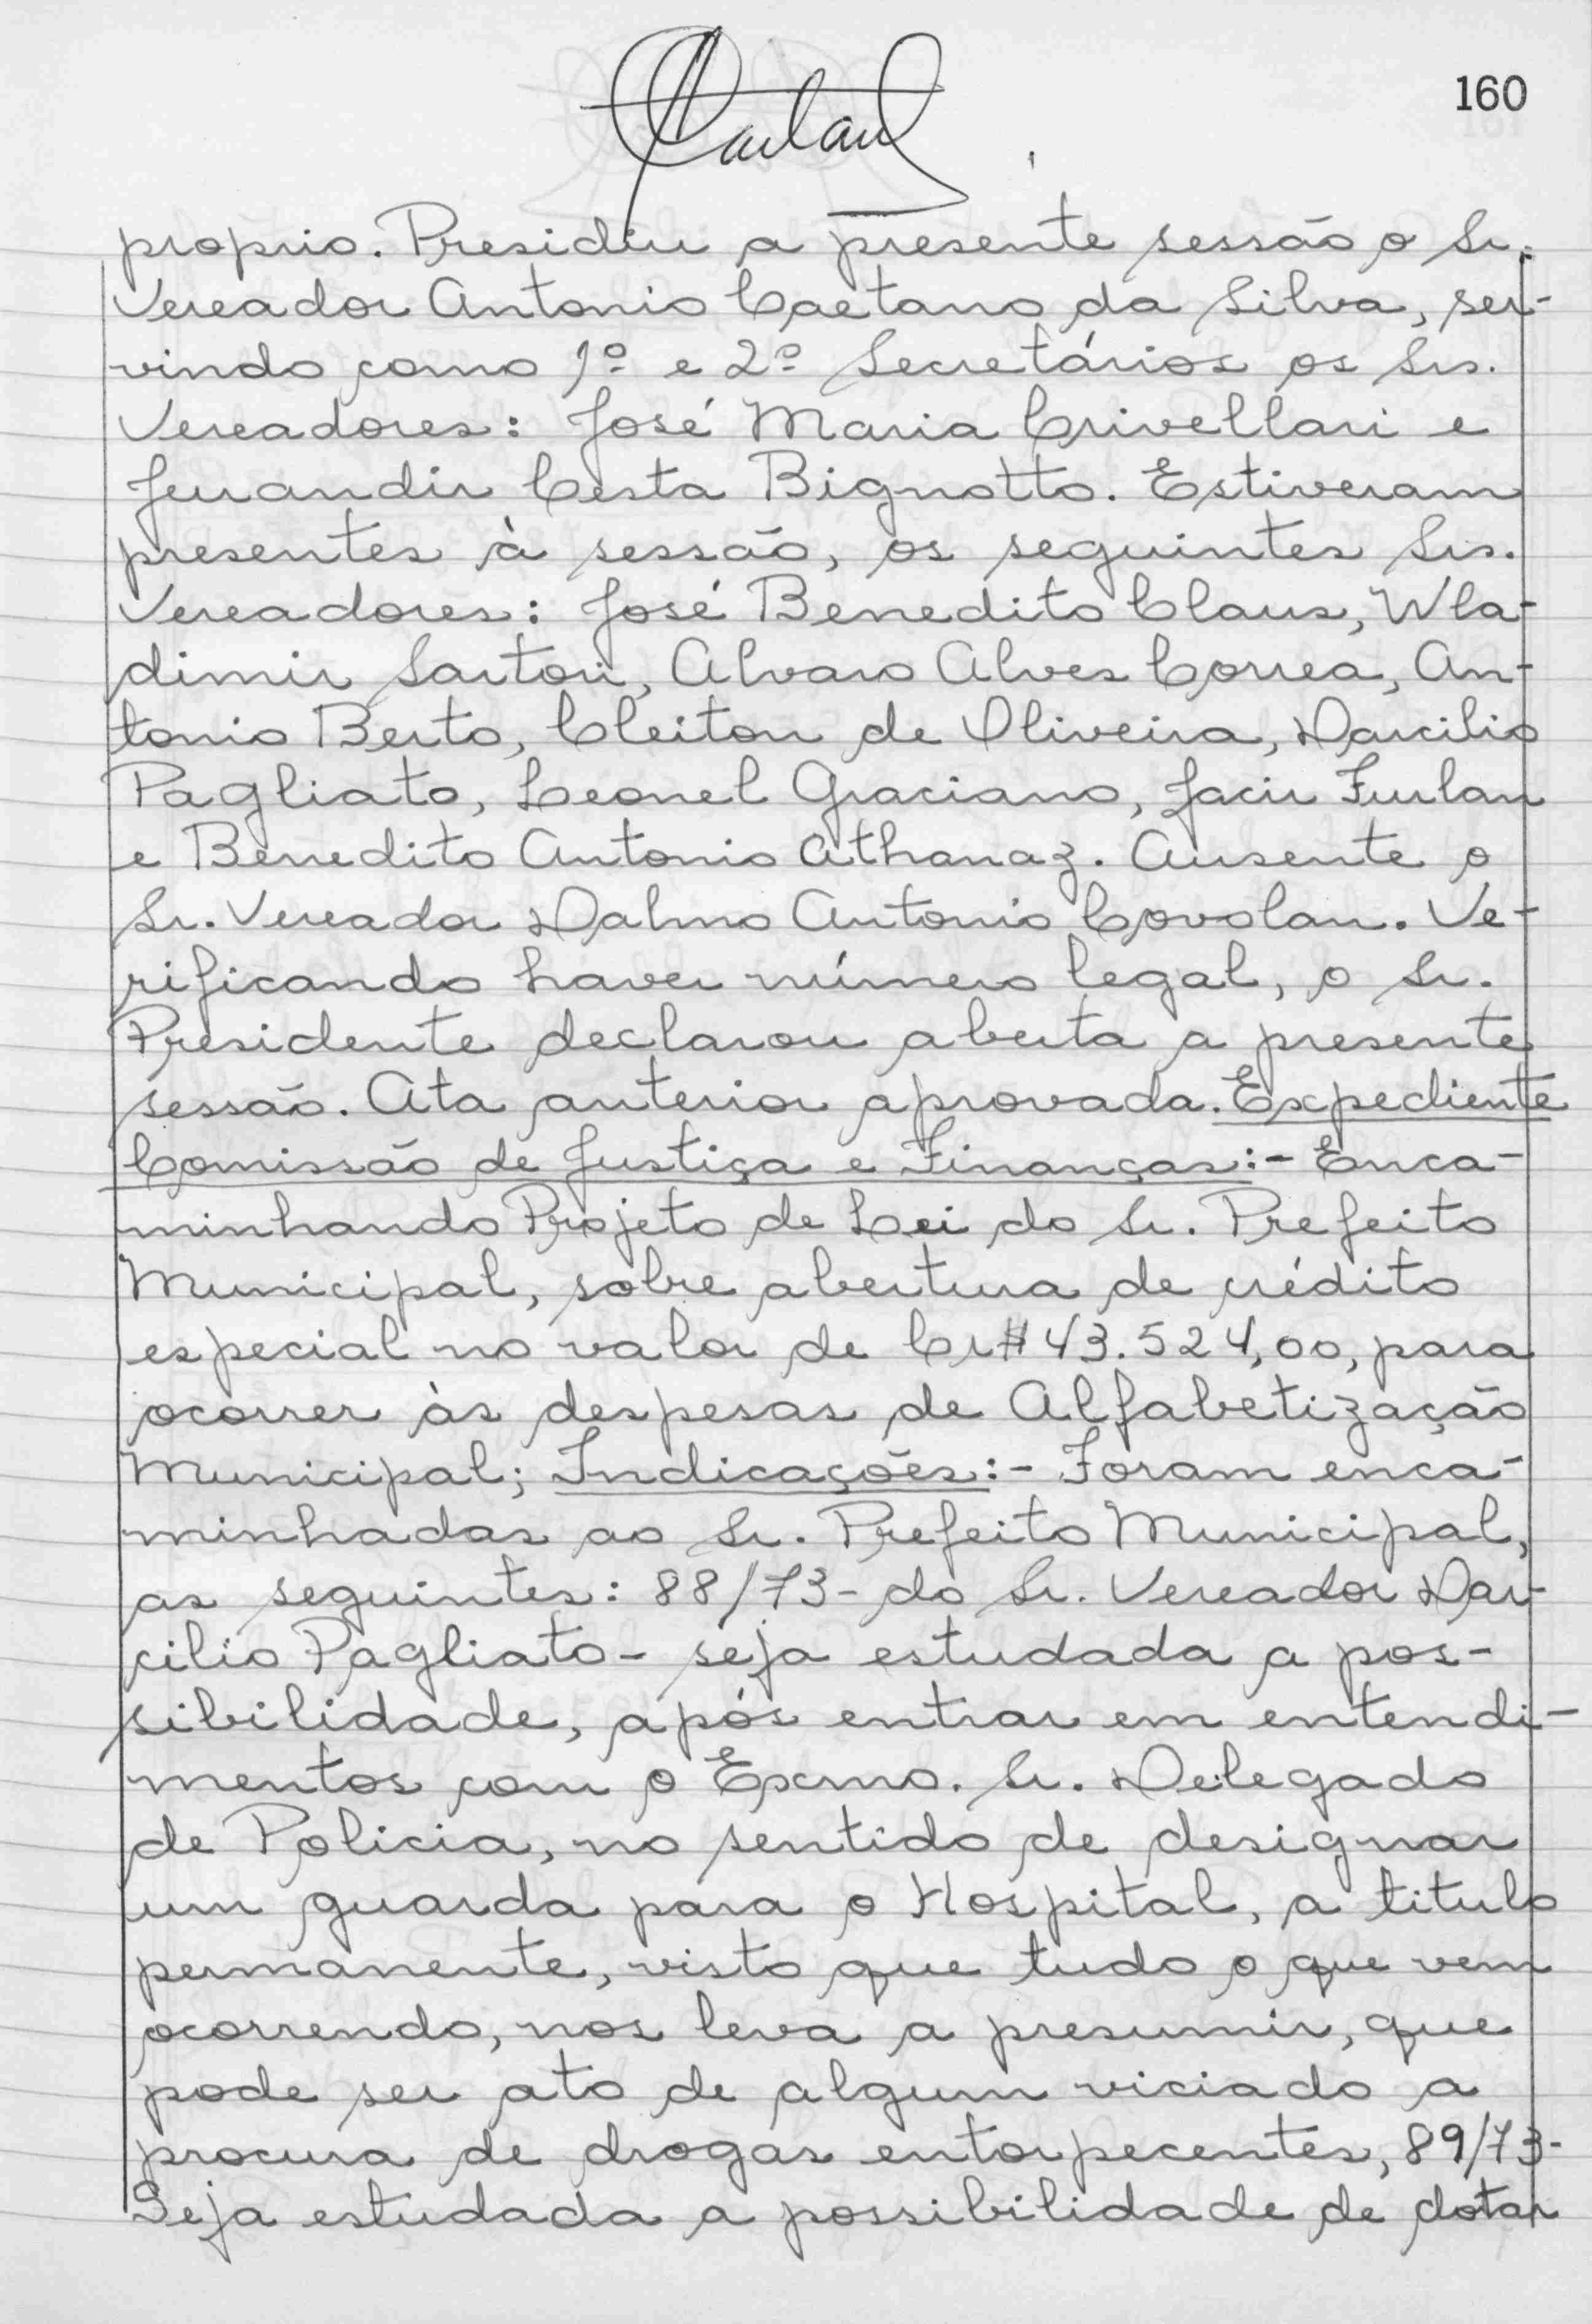 160
proprio. Presidiu a presente sessão o Sr.
Vereador Antonio Caetano da Silva, ser-
vindo como 1º e 2º Secretários os Srs.
Vereadores: José Maria Crivellari e
Jurandir Cesta Bignotto. Estiveram
presentes à sessão, os seguintes Srs.
Vereadores: José Benedito Claus, Wla-
dimir Sartori, Alvaro Alves Correa, An-
tonio Berto, Cleiton de Oliveira, Darcilio
Pagliato, Leonel Graciano, Jacir Furlan
e Benedito Antonio Athanaz. Ausente o
Sr. Vereador Dalmo Antonio Covolan. Ve-
rificando haver número legal, o Sr.
Presidente declarou aberta a presente
sessão. Ata anterior aprovada. Expediente
Comissão de Justiça e Finanças:- Enca-
minhando Projeto de Lei do Sr. Prefeito
Municipal, sobre abertura de crédito
especial no valor de Cr$ 43.524,00, para
ocorrer às despesas de Alfabetização
Municipal; Indicações:- Foram enca-
minhadas ao Sr. Prefeito Municipal,
as seguintes: 88/73- do Sr. Vereador Dar-
cilio Pagliato- seja estudada a pos-
sibilidade, após entrar em entendi-
mentos com o Exmo. Sr. Delegado
de Policia, no sentido de designar
um guarda para o Hospital, a titulo
permanente, visto que tudo o que vem
ocorrendo, nos leva a presumir, que
pode ser ato de algum viciado a
procura de drogas entorpecentes, 89/73-
Seja estudada a possibilidade de dotar